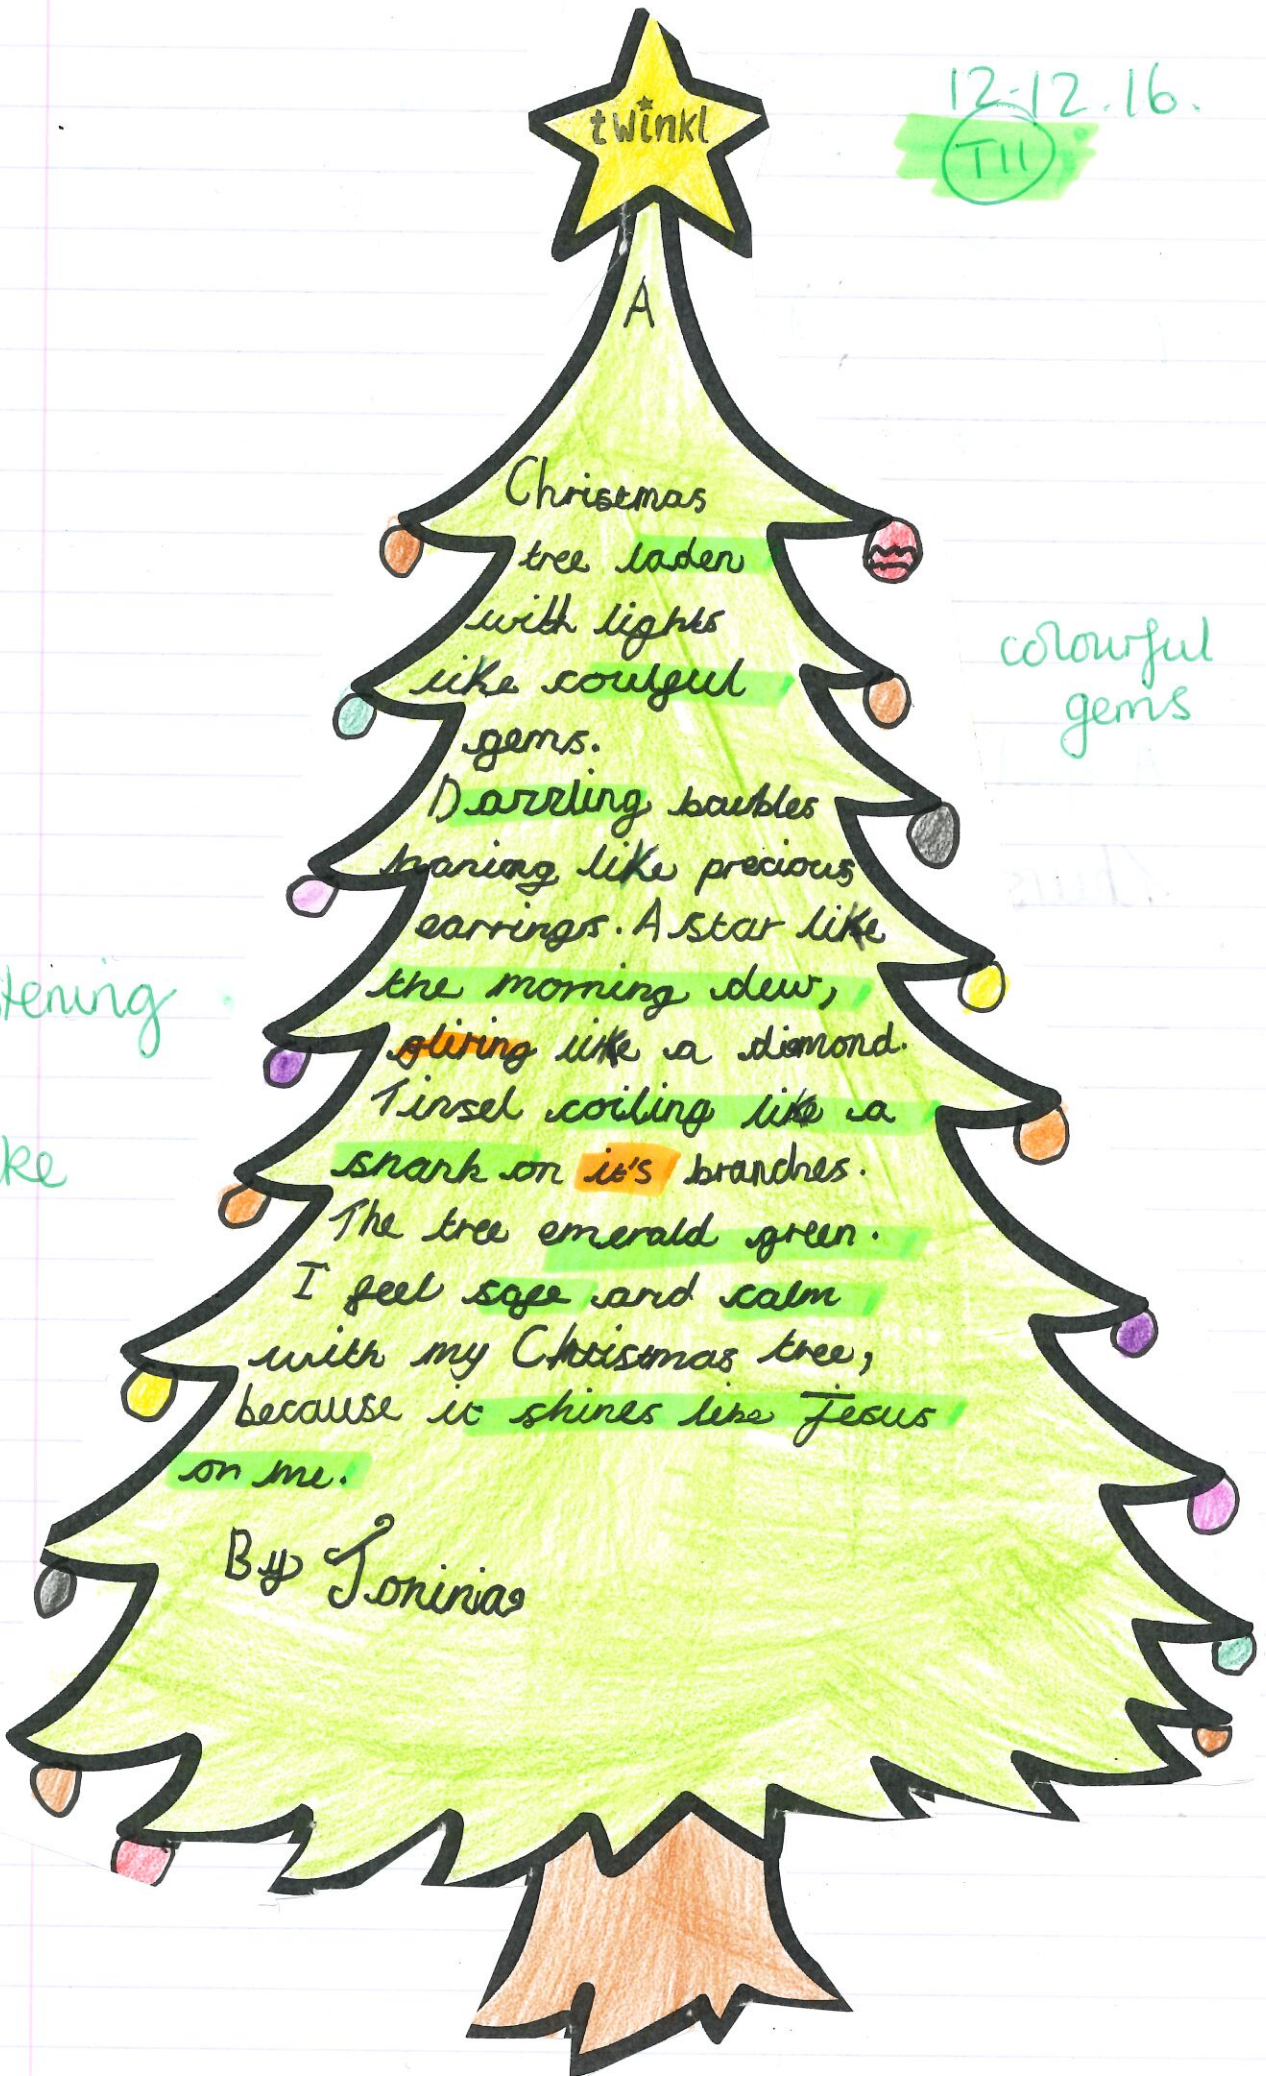 twinkl
12.12.16.
T11
A
Christmas
tree laden
with lights
like coulful
gems.
colourful
gems
Dazzling baubles
haning like precious
earrings. A star like
the morning dew,
tening
gliring like a dimond.
Tinsel coiling like a
snank on it's branches.
ke
The tree emerald green.
I feel safe and calm
with my Christmas tree,
because it shines like Jesus
on me.
By